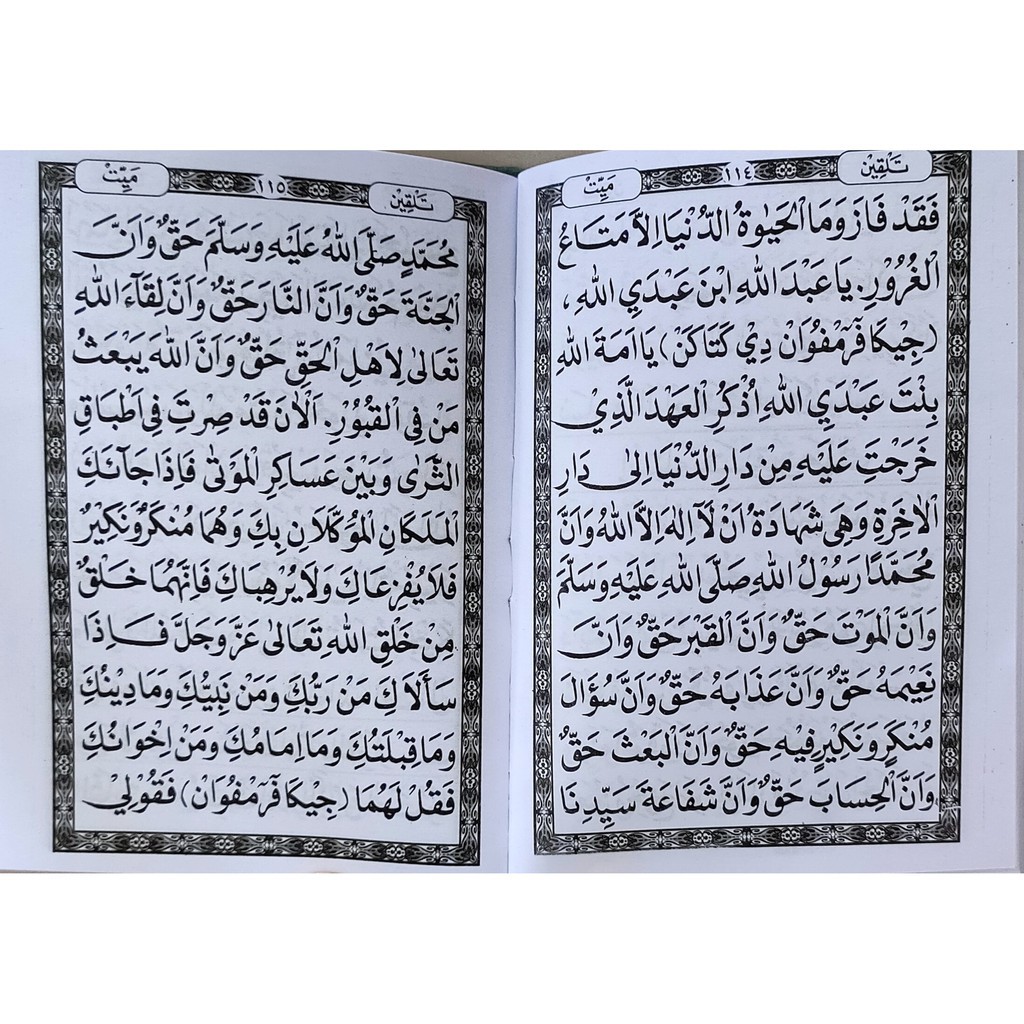 تَلْقِيْن ١١٤ مَيِّتْ
فَقَدْ فَازَ وَمَا الْحَيٰوةُ الدُّنْيَا اِلَّا مَتَاعُ
الْغُرُوْرِ. يَا عَبْدَ اللهِ ابْنَ عَبْدَيِ اللهِ،
(جِيْكَا فَرَمْفُوَانْ دِيْ كَتَاكَنْ) يَا اَمَةَ اللهِ
بِنْتَ عَبْدَيِ اللهِ اُذْكُرِ الْعَهْدَ الَّذِيْ
خَرَجْتِ عَلَيْهِ مِنْ دَارِ الدُّنْيَا اِلٰى دَارِ
الْاٰخِرَةِ وَهِيَ شَهَادَةُ اَنْ لَآ اِلٰهَ اِلَّا اللهُ وَاَنَّ
مُحَمَّدًا رَسُوْلُ اللهِ صَلَّى اللهُ عَلَيْهِ وَسَلَّمَ
وَاَنَّ الْمَوْتَ حَقٌّ وَاَنَّ الْقَبْرَ حَقٌّ وَاَنَّ
نَعِيْمَهُ حَقٌّ وَاَنَّ عَذَابَهُ حَقٌّ وَاَنَّ سُؤَالَ
مُنْكَرٍ وَنَكِيْرٍ فِيْهِ حَقٌّ وَاَنَّ الْبَعْثَ حَقٌّ
وَاَنَّ الْحِسَابَ حَقٌّ وَاَنَّ شَفَاعَةَ سَيِّدِنَا
تَلْقِيْن ١١٥ مَيِّتْ
مُحَمَّدٍ صَلَّى اللهُ عَلَيْهِ وَسَلَّمَ حَقٌّ وَاَنَّ
الْجَنَّةَ حَقٌّ وَاَنَّ النَّارَ حَقٌّ وَاَنَّ لِقَآءَ اللهِ
تَعَالٰى لِاَهْلِ الْحَقِّ حَقٌّ وَاَنَّ اللهَ يَبْعَثُ
مَنْ فِى الْقُبُوْرِ. اَلْاٰنَ قَدْ صِرْتِ فِى اَطْبَاقِ
الثَّرٰى وَبَيْنَ عَسَاكِرِ الْمَوْتٰى فَاِذَا جَائَكِ
الْمَلَكَانِ الْمُوَكَّلَانِ بِكِ وَهُمَا مُنْكَرٌ وَنَكِيْرٌ
فَلَا يُفْزِعَاكِ وَلَا يُرْهِبَاكِ فَاِنَّهُمَا خَلْقٌ
مِنْ خَلْقِ اللهِ تَعَالٰى عَزَّ وَجَلَّ فَاِذَا
سَأَلَاكِ مَنْ رَبُّكِ وَمَنْ نَبِيُّكِ وَمَا دِيْنُكِ
وَمَا قِبْلَتُكِ وَمَا اِمَامُكِ وَمَنْ اِخْوَانُكِ
فَقُلْ لَهُمَا (جِيْكَا فَرَمْفُوَانْ) فَقُوْلِيْ